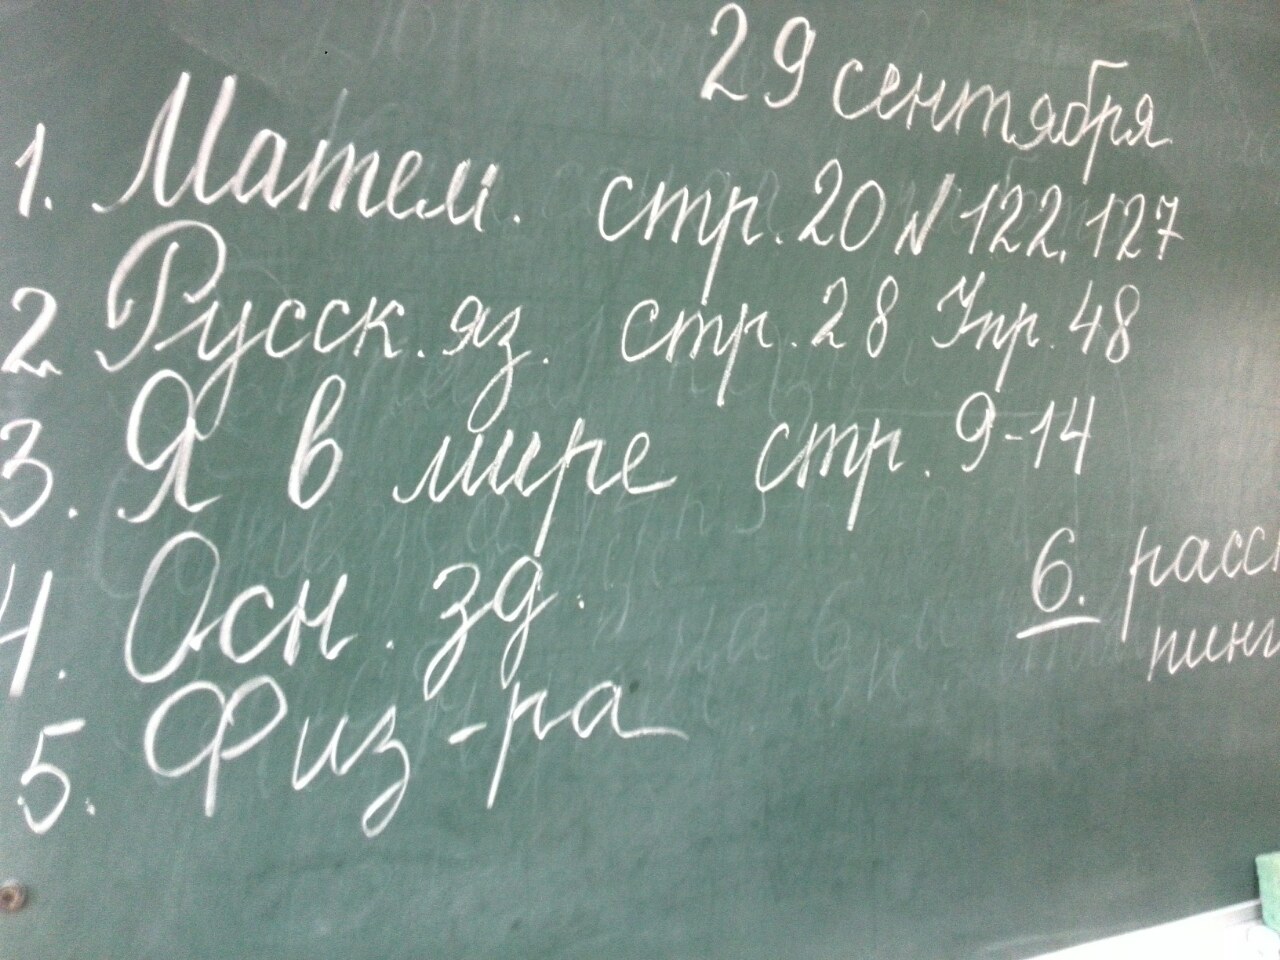 29 сентября
1. Матем. стр. 20 № 122, 127
2. Русск. яз. стр. 28 Упр. 48
3. Я в мире стр. 9-14
4. Осн. зд.
5. Физ-ра
6.